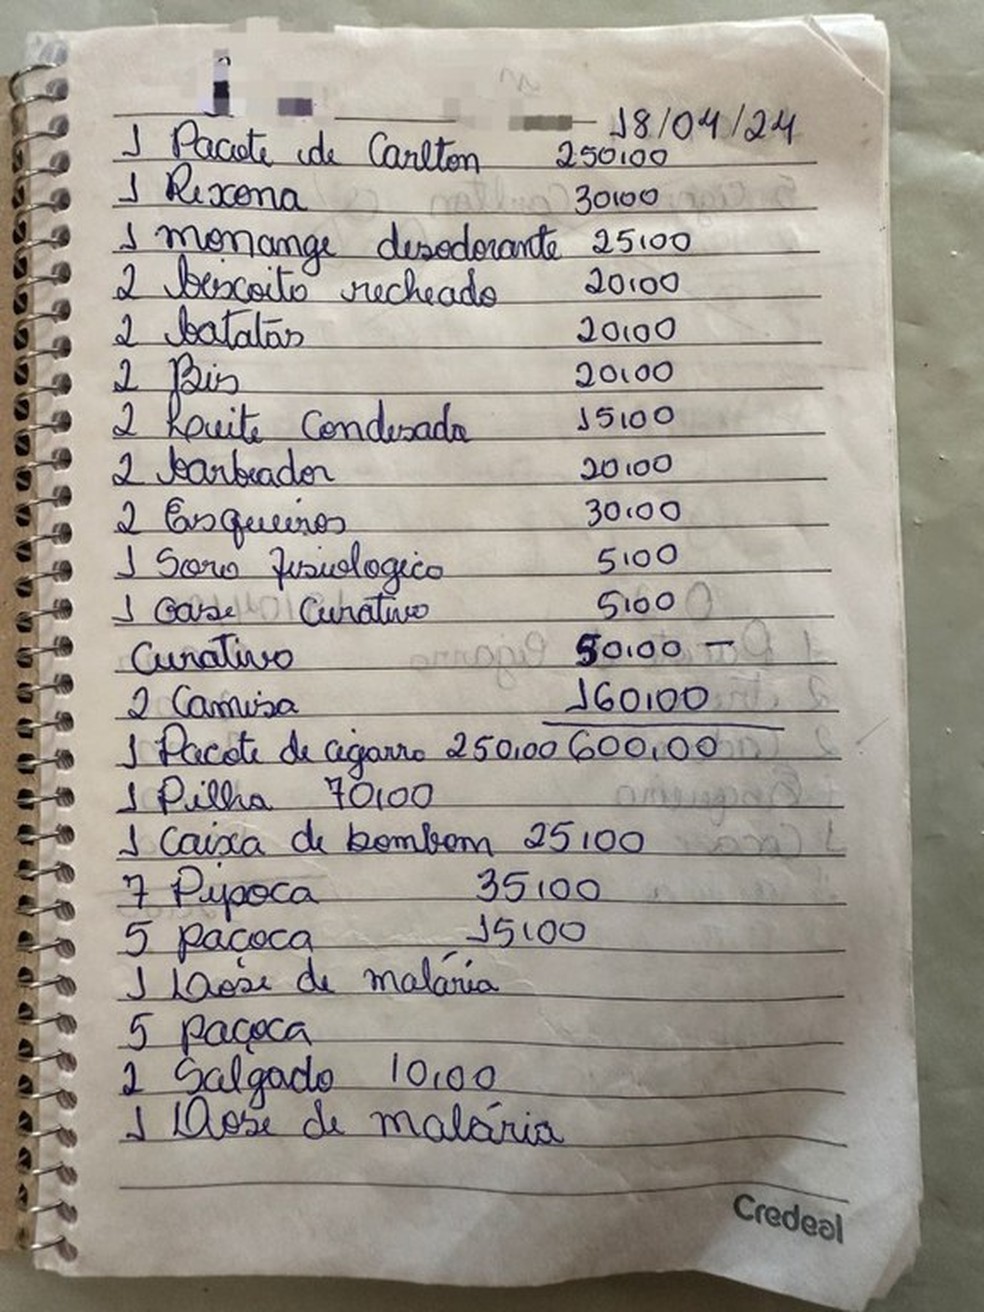 18/04/24
1 Pacote de Carlton 250,00
1 Rexona 30,00
1 monange desodorante 25,00
2 biscoito recheado 20,00
2 batatas 20,00
2 Bis 20,00
2 Leite Condesada 15,00
2 barbeador 20,00
2 Esqueiros 30,00
1 Soro fisiologico 5,00
1 Gase Curativo 5,00
Curativo 50,00 -
2 Camisa 160,00
1 Pacote de cigarro 250,00 600,00
1 Pilha 70,00
1 Caixa de bombom 25,00
7 Pipoca 35,00
5 paçoca 15,00
1 Dose de malária
5 paçoca
2 Salgado 10,00
1 Dose de malária
Credeal